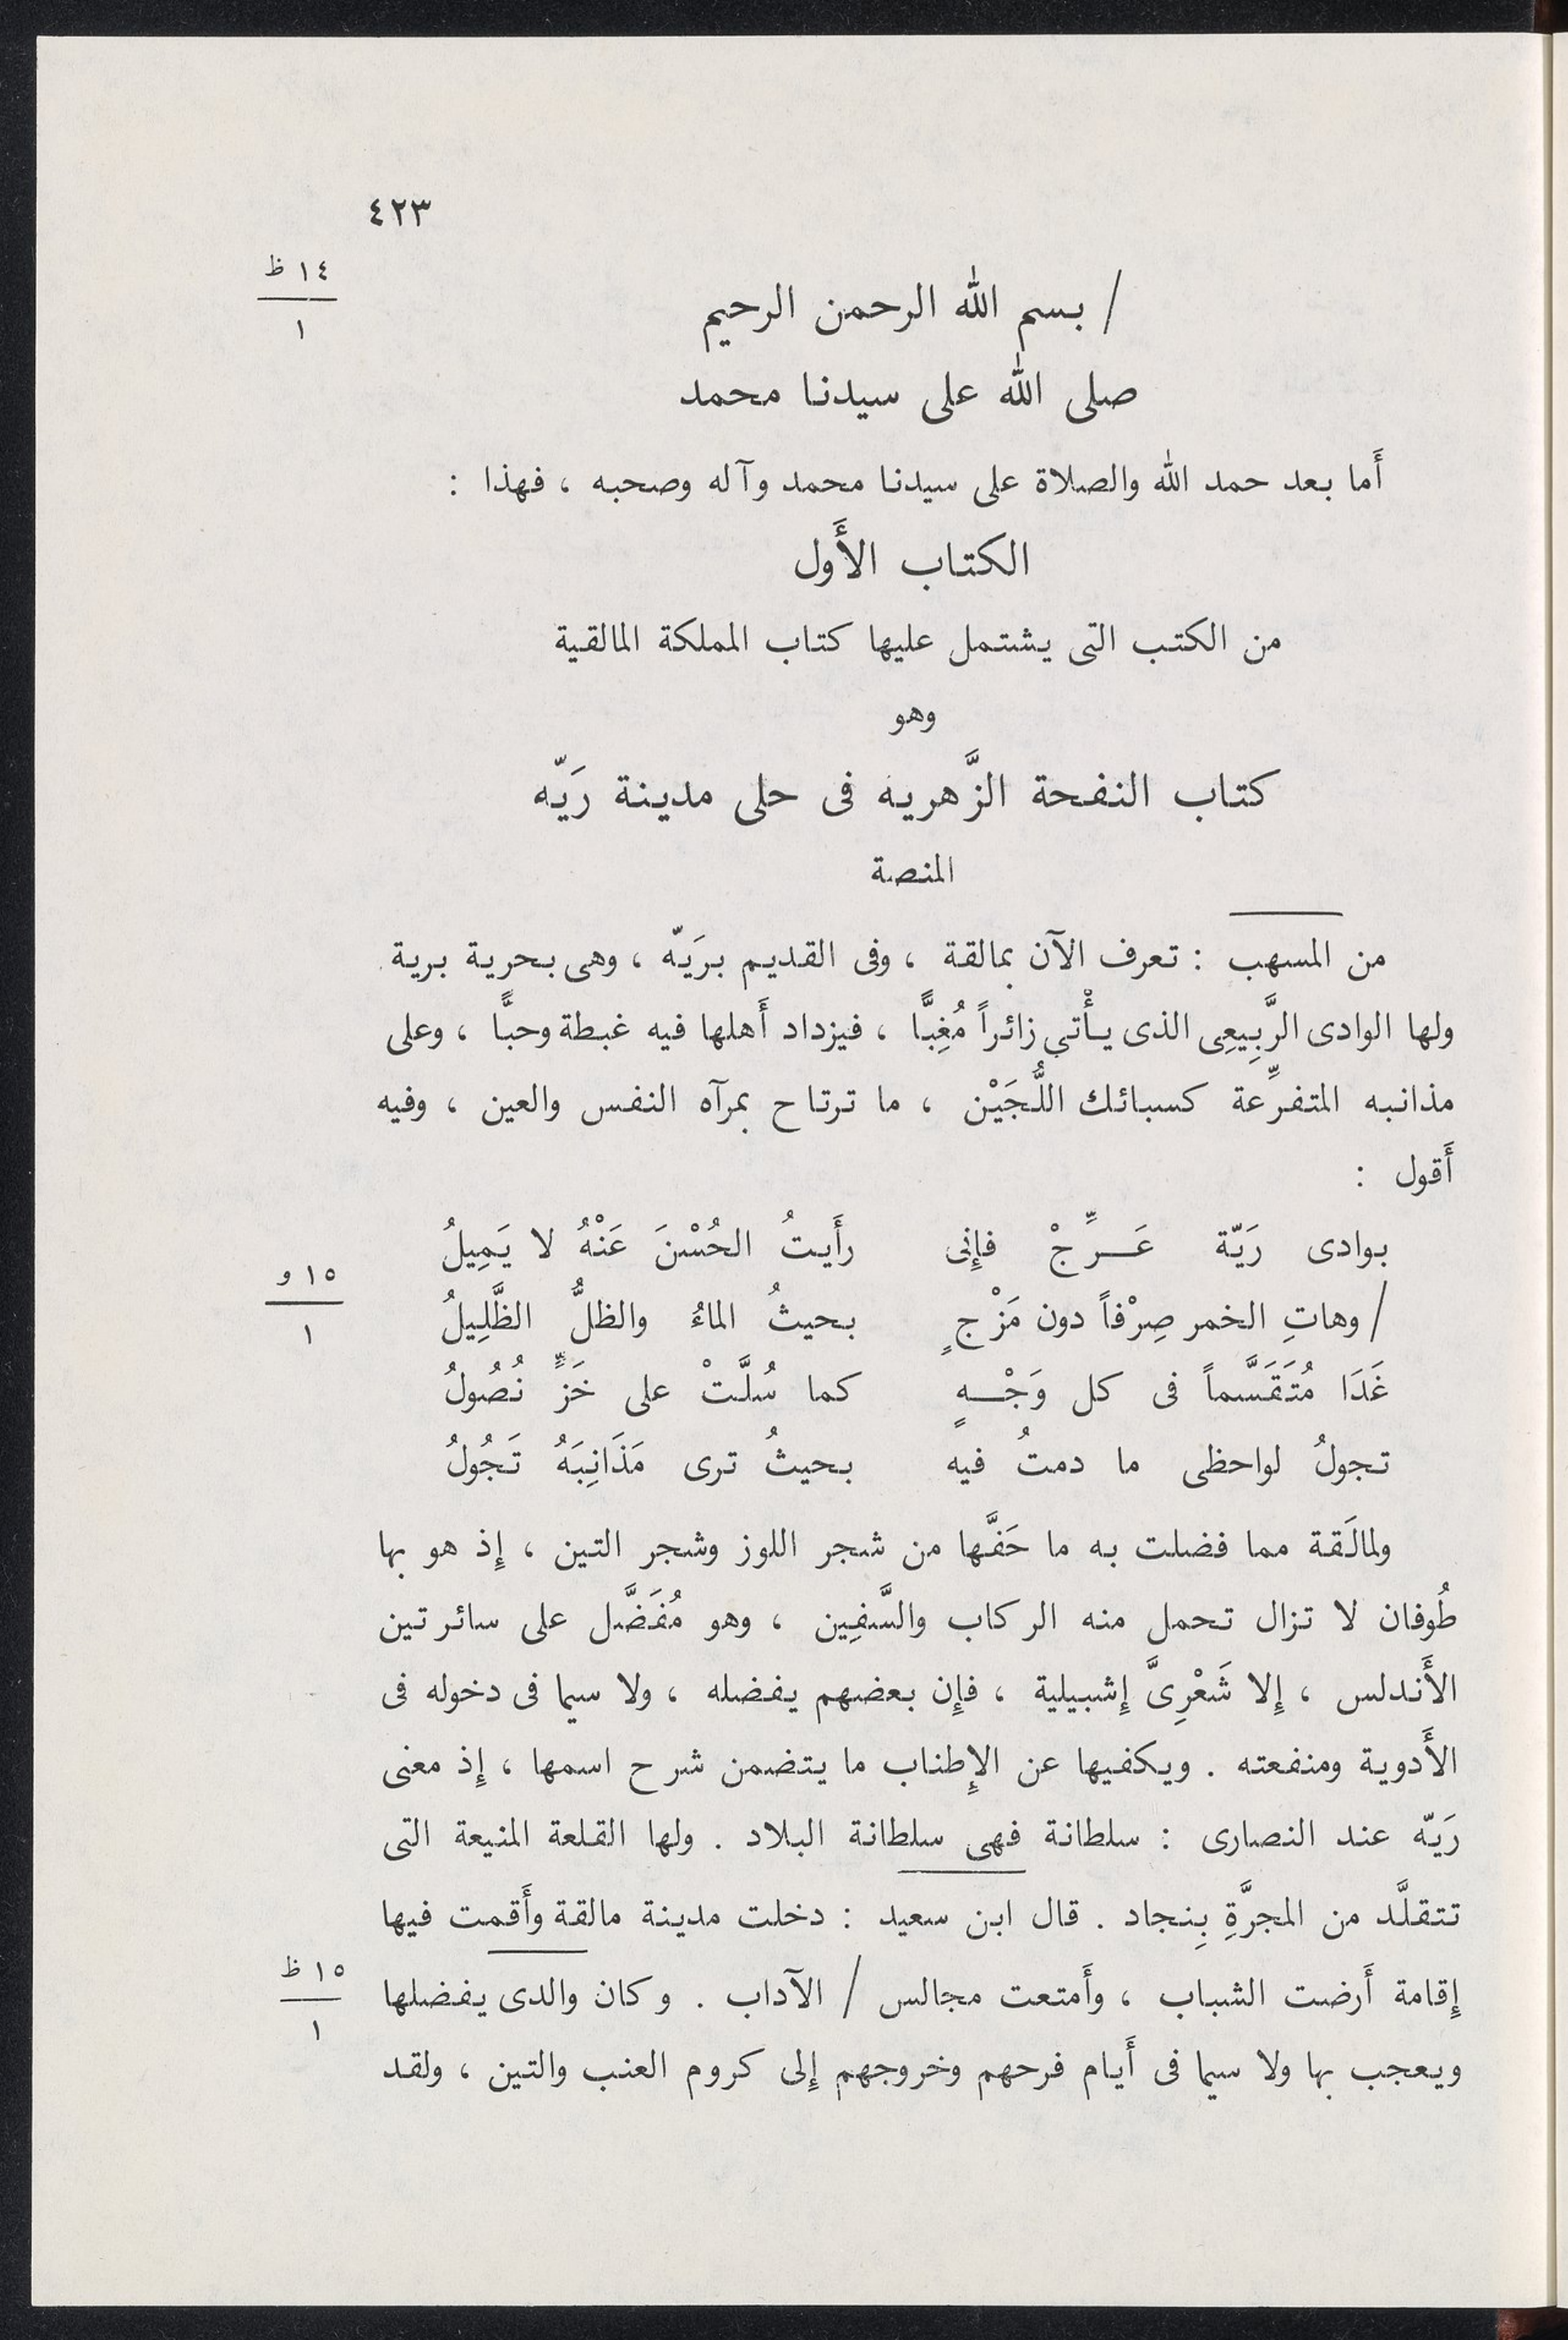 ٤٢٣
١٤ ظ
١
/ بسم الله الرحمن الرحيم
صلى الله على سيدنا محمد
أَما بعد حمد الله والصلاة على سيدنا محمد وآله وصحبه ، فهذا :
الكتاب الأَول
من الكتب التى يشتمل عليها كتاب المملكة المالقية
وهو
كتاب النفحة الزَّهريه فى حلى مدينة رَيّه
المنصة
من المسهب : تعرف الآن بمالقة ، وفى القديم برَيّه ، وهى بحرية برية
ولها الوادى الرَّبِيعِى الذى يأْتي زائراً مُغِبًّا ، فيزداد أَهلها فيه غبطة وحبًّا ، وعلى
مذانبه المتفرِّعة كسبائك اللُّجَيْن ، ما ترتاح بمرآه النفس والعين ، وفيه
أَقول :
بوادى رَيّة عَـرِّجْ فإِنى رأَيتُ الحُسْنَ عَنْهُ لا يَمِيلُ
١٥ و
١
/ وهاتِ الخمر صِرْفاً دون مَزْجٍ بحيثُ الماءُ والظلُّ الظَّلِيلُ
غَدَا مُتَقَسَّماً فى كل وَجْـهٍ كما سُلَّتْ على خَزٍّ نُصُولُ
تجولُ لواحظى ما دمتُ فيه بحيثُ ترى مَذَانِبَهُ تَجُولُ
ولمالَقة مما فضلت به ما حَفَّها من شجر اللوز وشجر التين ، إِذ هو بها
طُوفان لا تزال تحمل منه الركاب والسَّفِين ، وهو مُفَضَّل على سائر تين
الأَندلس ، إِلا شَعْرِىَّ إِشبيلية ، فإِن بعضهم يفضله ، ولا سيما فى دخوله فى
الأَدوية ومنفعته . ويكفيها عن الإِطناب ما يتضمن شرح اسمها ، إِذ معنى
رَيّه عند النصارى : سلطانة فهى سلطانة البلاد . ولها القلعة المنيعة التى
تتقلَّد من المجرَّةِ بِنجاد . قال ابن سعيد : دخلت مدينة مالقة وأَقمت فيها
١٥ ظ
١
إِقامة أَرضت الشباب ، وأَمتعت مجالس / الآداب . وكان والدى يفضلها
ويعجب بها ولا سيما فى أَيام فرحهم وخروجهم إِلى كروم العنب والتين ، ولقد